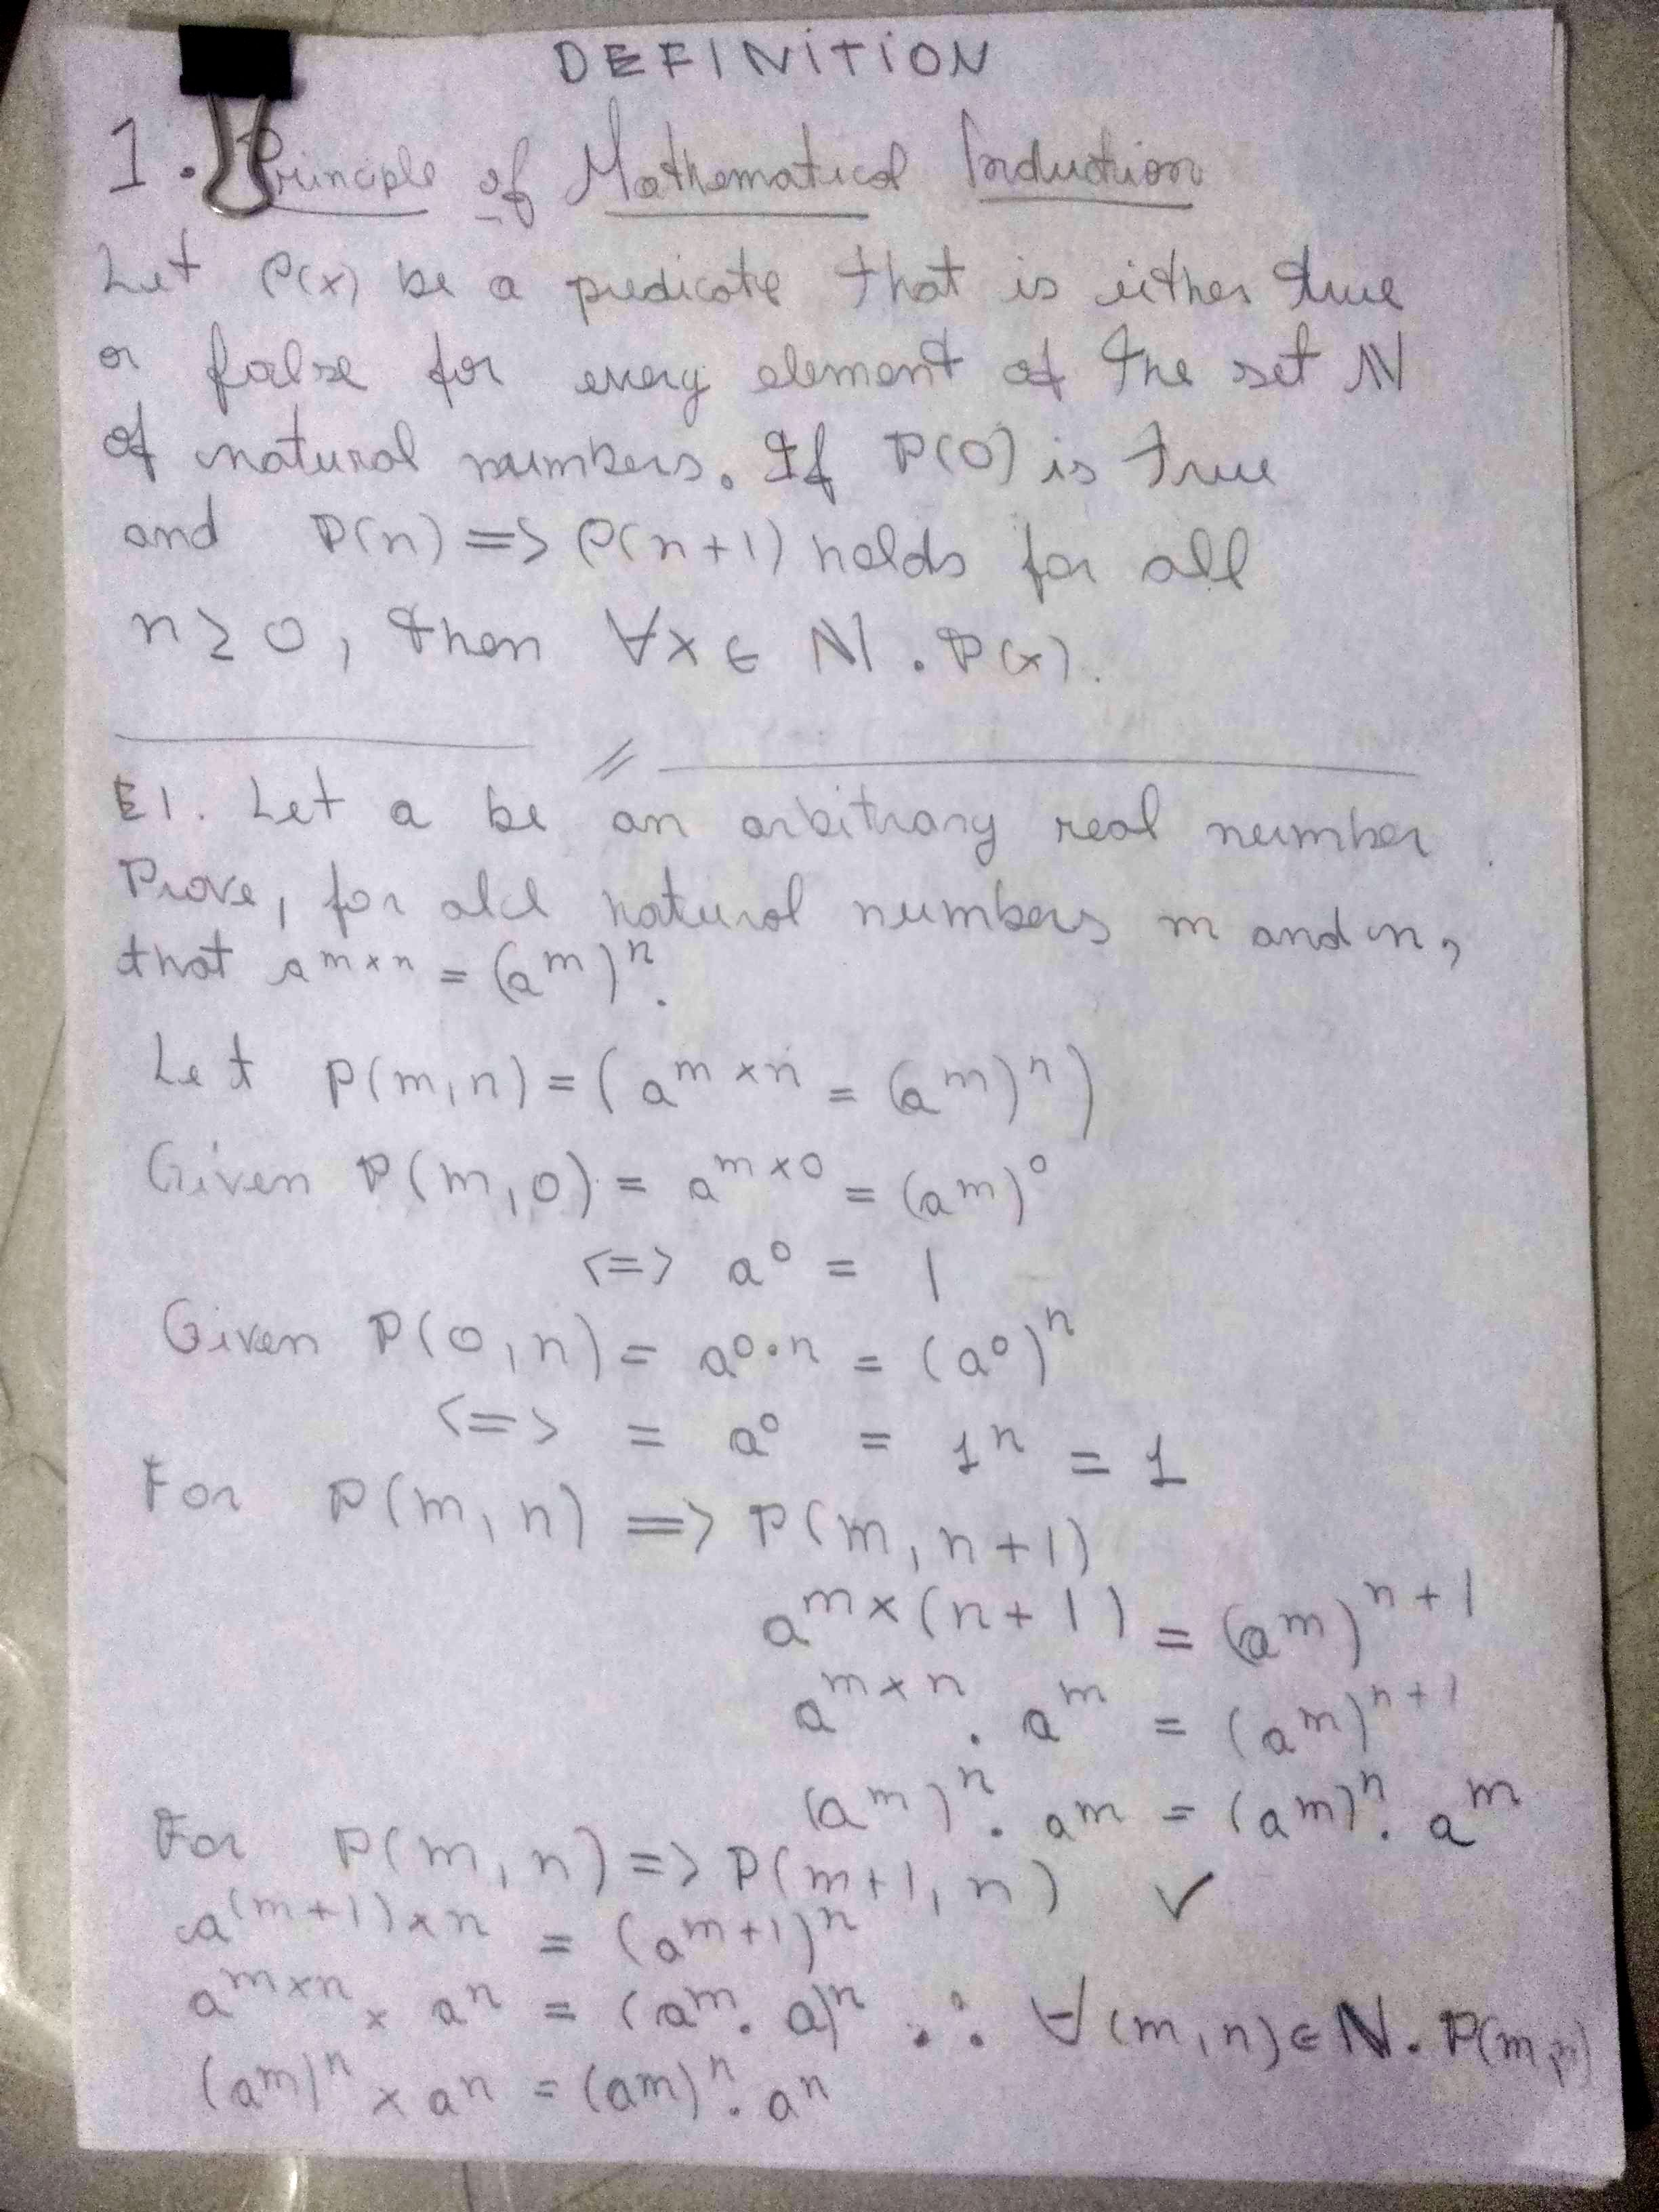 DEFINITION
1. Principle of Mathematical Induction
Let P(x) be a predicate that is either true
or false for every element of the set ℕ
of natural numbers. If P(0) is true
and P(n) => P(n+1) holds for all
n ≥ 0, then ∀x ∈ ℕ . P(x).
//
E1. Let a be an arbitrary real number.
Prove, for all natural numbers m and n,
that a^m×n = (a^m)^n.
Let P(m,n) = (a^m×n = (a^m)^n)
Given P(m,0) = a^m×0 = (a^m)^0
<=> a^0 = 1
Given P(0,n) = a^0·n = (a^0)^n
<=> = a^0 = 1^n = 1
For P(m,n) => P(m,n+1)
a^m×(n+1) = (a^m)^n+1
a^m×n . a^m = (a^m)^n+1
(a^m)^n . a^m = (a^m)^n . a^m
For P(m,n) => P(m+1,n) ✓
a^(m+1)×n = (a^m+1)^n
a^m×n × a^n = (a^m . a)^n ∴ ∀(m,n) ∈ ℕ . P(m,n)
(a^m)^n × a^n = (a^m)^n . a^n